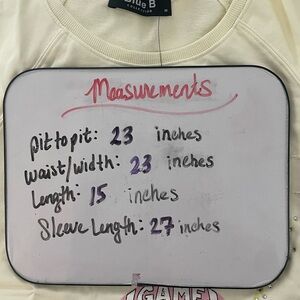 Blue B
Measurements
pit to pit: 23 inches
waist/width: 23 inches
Length: 15 inches
Sleeve Length: 27 inches
GAME